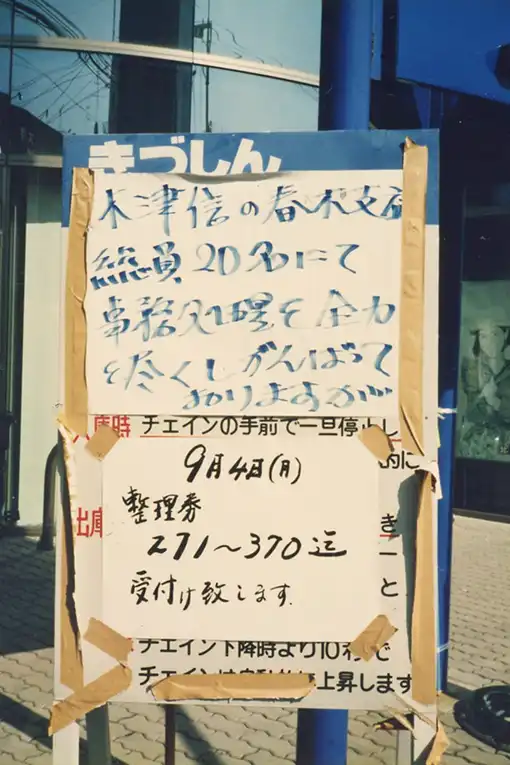 きづしん
木津信の春木支店
総員20名にて
事務処理を全力
を尽くしがんばって
おりますが
入庫時 チェインの手前で一旦停止し
的に
9月4日(月)
整理券
271～370迄
受付け致します.
出庫
き
と
チェイン下降時より10秒で
チェインは自動的に上昇します